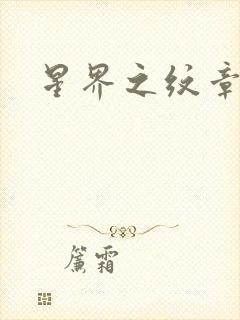 星界之纹章
簾霜